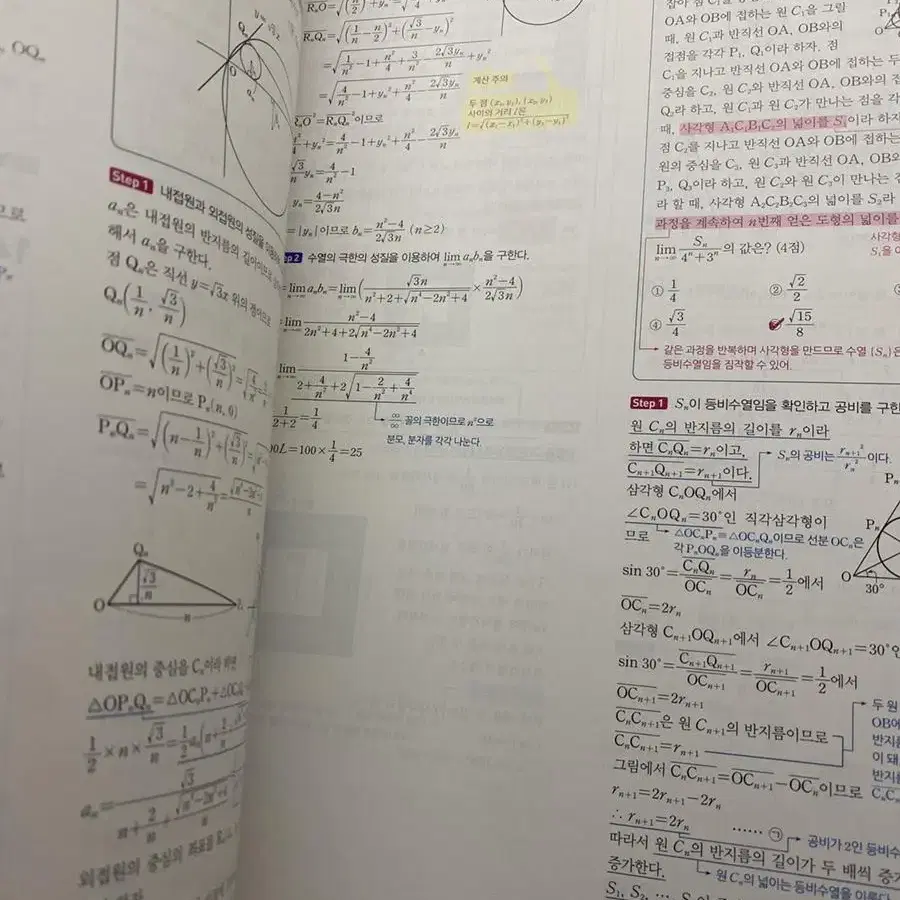 , OQₙ
y=√3x
Step 1 내접원과 외접원의 성질을 이용하여
aₙ은 내접원의 반지름의 길이이므로
해서 aₙ을 구한다.
점 Qₙ은 직선 y=√3x 위의 점이므로
Qₙ(1/n, √3/n)
OPₙ=n이므로 Pₙ(n, 0)
Qₙ
√3/n
O
n
내접원의 중심을 Cₙ이라 하면
1/2×n×√3/n=
aₙ=
외접원의 중심의 좌표를
RₙQₙ=√((1/n-n/2)²+(√3/n-yₙ)²)
=√(1/n²-1+n²/4+3/n²-2√3yₙ/n+yₙ²)
=√(4/n²-1+yₙ²+n²/4-2√3yₙ/n)
계산 주의
두 점 (x₁, y₁), (x₂, y₂)
사이의 거리 l은
l=√((x₂-x₁)²+(y₂-y₁)²)
RₙO²=RₙQₙ²이므로
/4+yₙ²=4/n²-1+yₙ²+n²/4-2√3yₙ/n
√3/n yₙ=4/n²-1
yₙ=(4-n²)/(2√3n)
=|yₙ|이므로 bₙ=(n²-4)/(2√3n) (n≥2)
ep 2 수열의 극한의 성질을 이용하여 lim aₙbₙ을 구한다.
=lim aₙbₙ=lim(√3n/(n²+2+√(n⁴-2n²+4))×(n²-4)/(2√3n))
=lim (n²-4)/(2n²+4+2√(n⁴-2n²+4))
lim (1-4/n²)/(2+4/n²+2√(1-2/n²+4/n⁴))
1/(2+2)=1/4
∞/∞ 꼴의 극한이므로 n²으로
분모, 분자를 각각 나눈다.
00L=100×1/4=25
OA와 OB에 접하는 원 C₁을 그릴
때, 원 C₁과 반직선 OA, OB와의
접점을 각각 P₁, Q₁이라 하자. 점
C₁을 지나고 반직선 OA와 OB에 접하는
중심을 C₂, 원 C₂와 반직선 OA, OB와의 접
Q₂라 하고, 원 C₁과 원 C₂가 만나는 점을 각
때, 사각형 A₁C₁B₁C₂의 넓이를 S₁이라 하자
점 C₂를 지나고 반직선 OA와 OB에 접하는
원의 중심을 C₃, 원 C₃과 반직선 OA, OB와
P₃, Q₃이라 하고, 원 C₂와 원 C₃이 만나는
라 할 때, 사각형 A₂C₂B₂C₃의 넓이를 S₂라
과정을 계속하여 n번째 얻은 도형의 넓이를
lim Sₙ/(4ⁿ+3ⁿ)의 값은? (4점)
사각형
S₁을
① 1/4
② √2/2
④ √3/4
√15/8
같은 과정을 반복하며 사각형을 만드므로 수열 {Sₙ}은
등비수열임을 짐작할 수 있어.
Step 1 Sₙ이 등비수열임을 확인하고 공비를 구한
원 Cₙ의 반지름의 길이를 rₙ이라
하면 CₙQₙ=rₙ이고,
Sₙ의 공비는 rₙ₊₁²/rₙ² 이다.
Cₙ₊₁Qₙ₊₁=rₙ₊₁이다.
삼각형 CₙOQₙ에서
∠CₙOQₙ=30°인 직각삼각형이
므로
△OCₙPₙ≡△OCₙQₙ이므로 선분 OCₙ은
각 PₙOQₙ을 이등분한다.
Pₙ
O
30°
sin 30°=CₙQₙ/OCₙ=rₙ/OCₙ=1/2에서
OCₙ=2rₙ
삼각형 Cₙ₊₁OQₙ₊₁에서 ∠Cₙ₊₁OQₙ₊₁=30°인
sin 30°=Cₙ₊₁Qₙ₊₁/OCₙ₊₁=rₙ₊₁/OCₙ₊₁=1/2에서
OCₙ₊₁=2rₙ₊₁
CₙCₙ₊₁은 원 Cₙ₊₁의 반지름이므로
CₙCₙ₊₁=rₙ₊₁
두 원
OB에
반지름
이 돼
반지름
그림에서 CₙCₙ₊₁=OCₙ₊₁-OCₙ이므로
rₙ₊₁=2rₙ₊₁-2rₙ
∴ rₙ₊₁=2rₙ …… ㉠
공비가 2인 등비수
따라서 원 Cₙ의 반지름의 길이가 두 배씩 증가
증가한다.
원 Cₙ의 넓이는 등비수열을 이룬다.
S₁, S₂, …, Sₙ